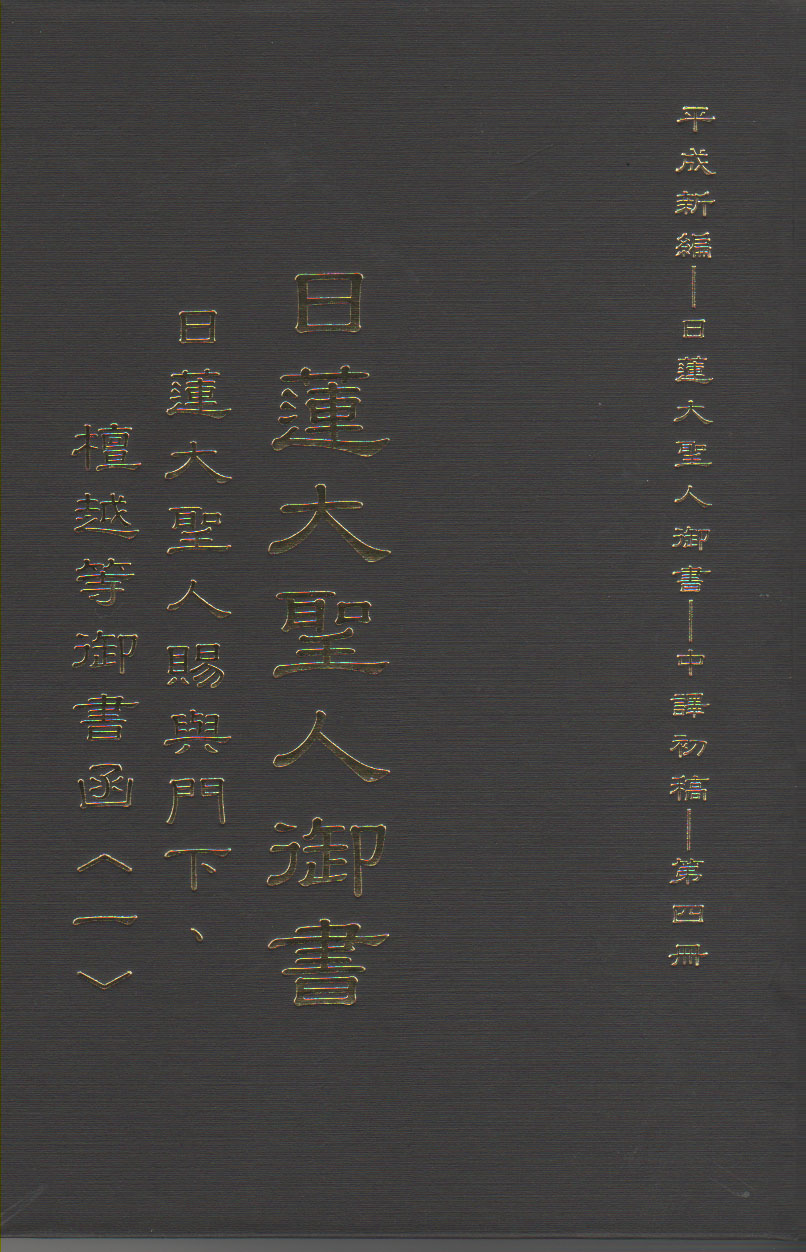 平成新編—日蓮大聖人御書—中譯初稿—第四冊
日蓮大聖人御書
日蓮大聖人賜與門下、
檀越等御書函〈一〉